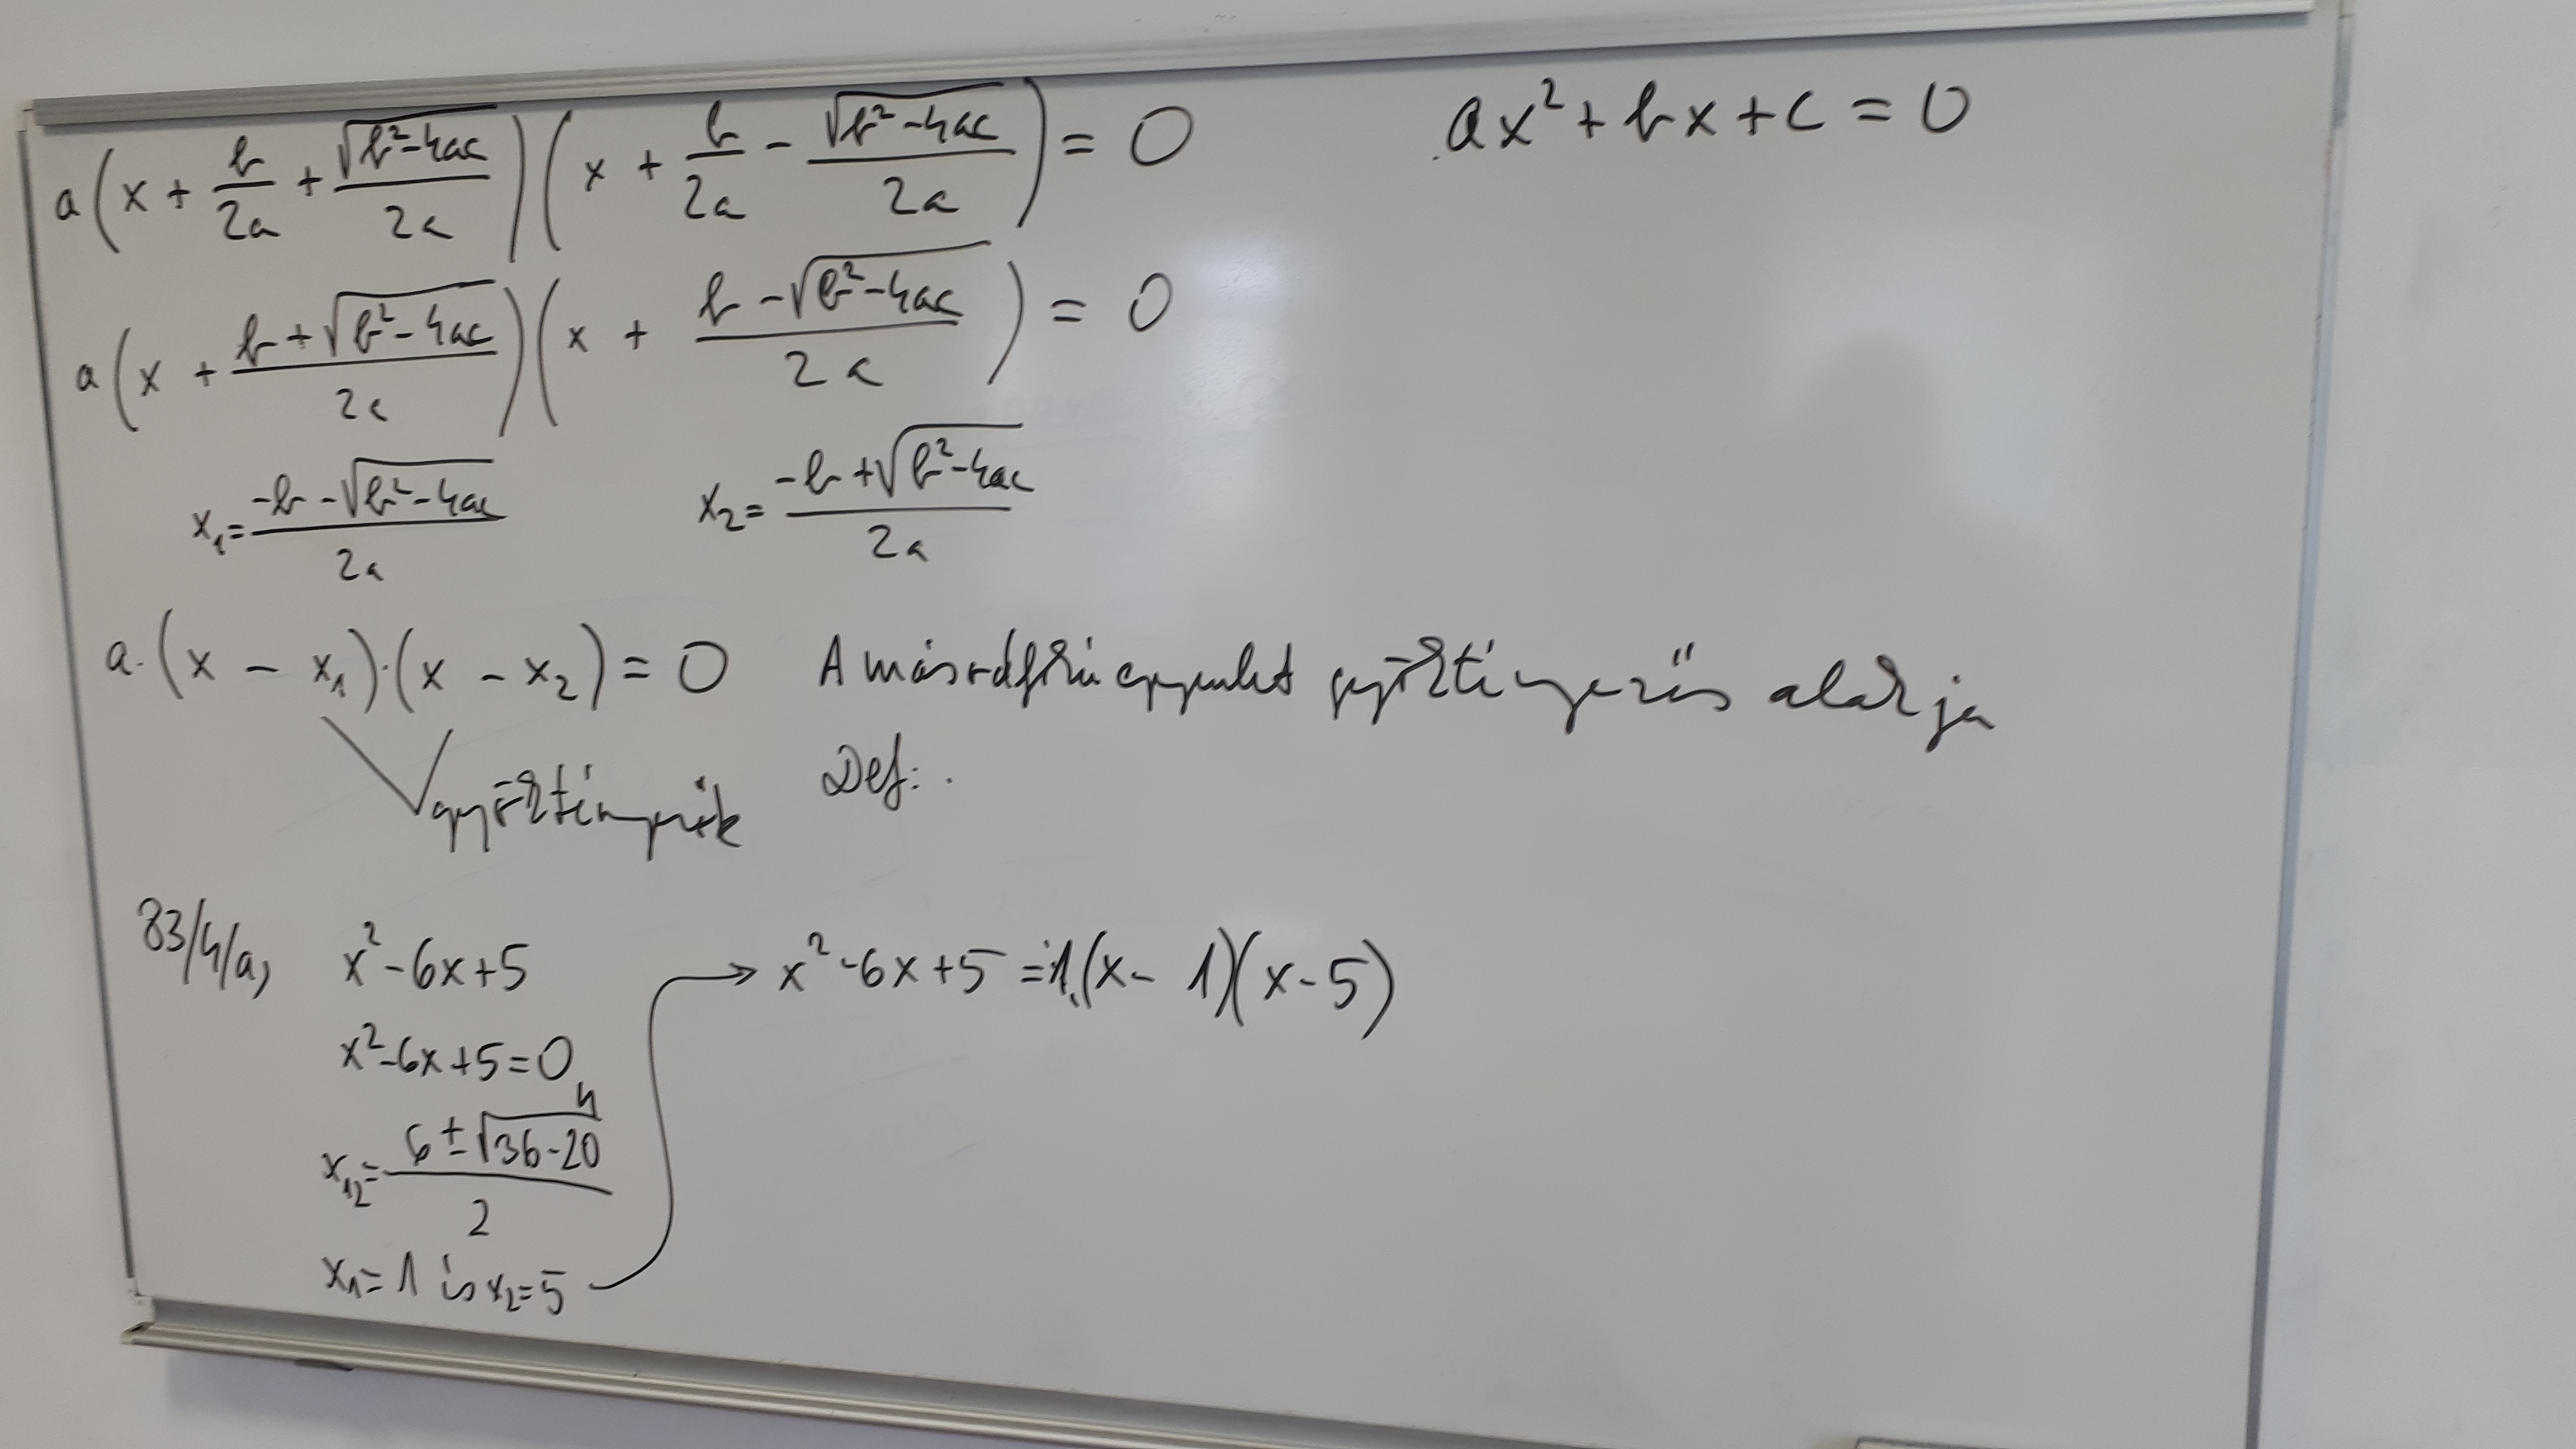 ax² + bx + c = 0
a(x + b/2a + √(b²-4ac)/2a)(x + b/2a - √(b²-4ac)/2a) = 0
a(x + (b+√(b²-4ac))/2a)(x + (b-√(b²-4ac))/2a) = 0
x₁ = (-b-√(b²-4ac))/2a x₂ = (-b+√(b²-4ac))/2a
a·(x - x₁)·(x - x₂) = 0 A másodfokú egyenlet gyöktényezős alakja
gyöktényezők Def:.
83/4/a, x²-6x+5 → x²-6x+5 = 1·(x- 1)(x-5)
x²-6x+5=0
4
x₁₂ = (6±√(36-20))/2
x₁=1 és x₂=5